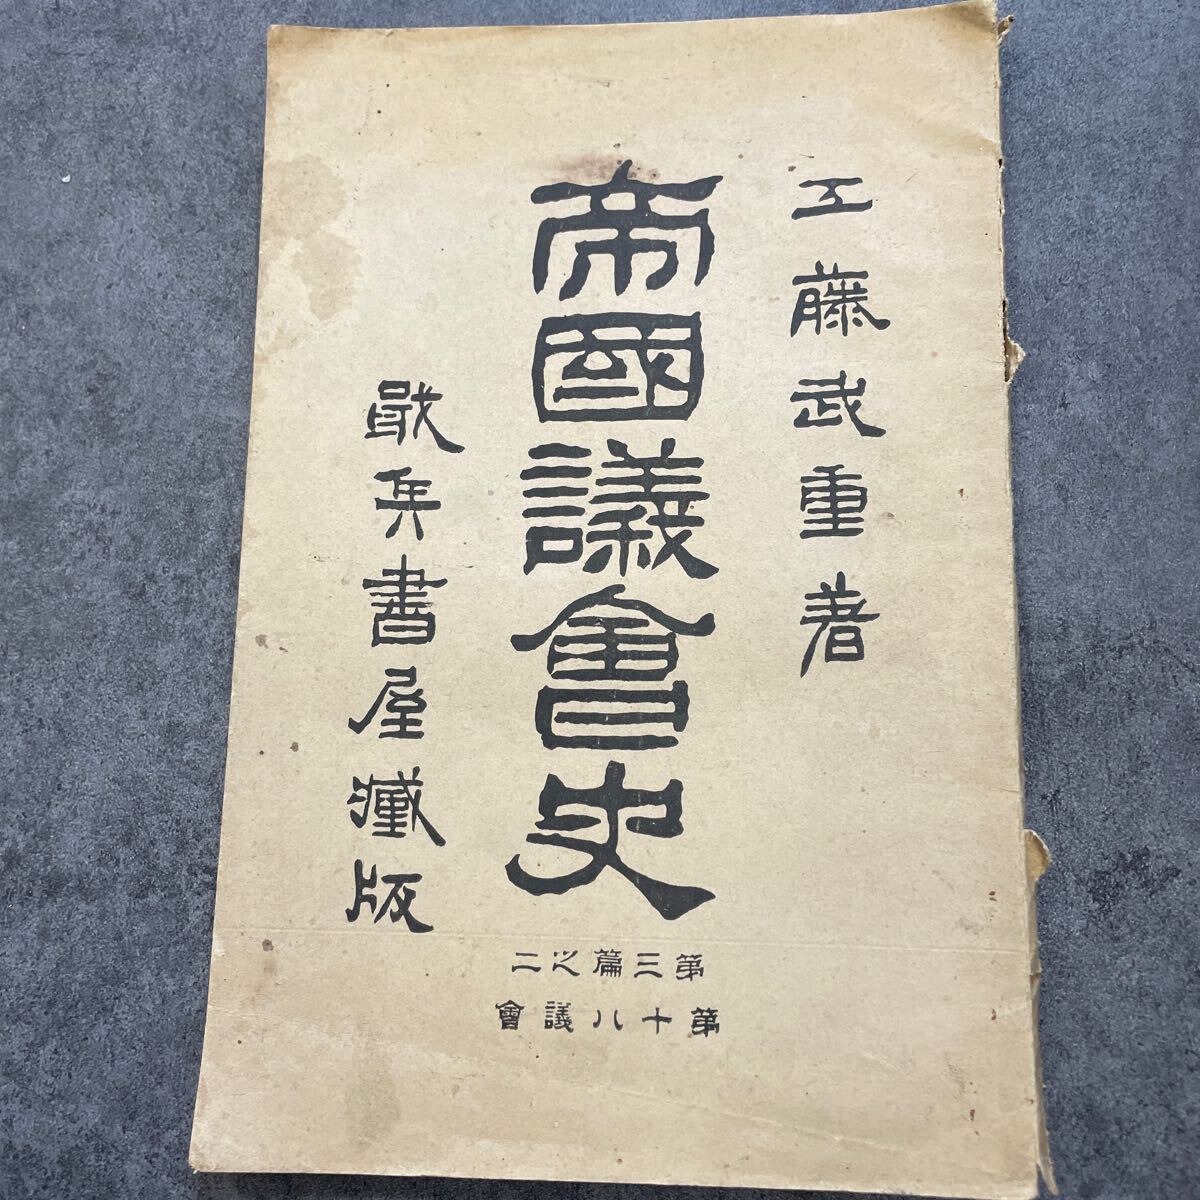 工藤武重著
帝國議會史
戢兵書屋藏版
第三篇之二
第十八議會